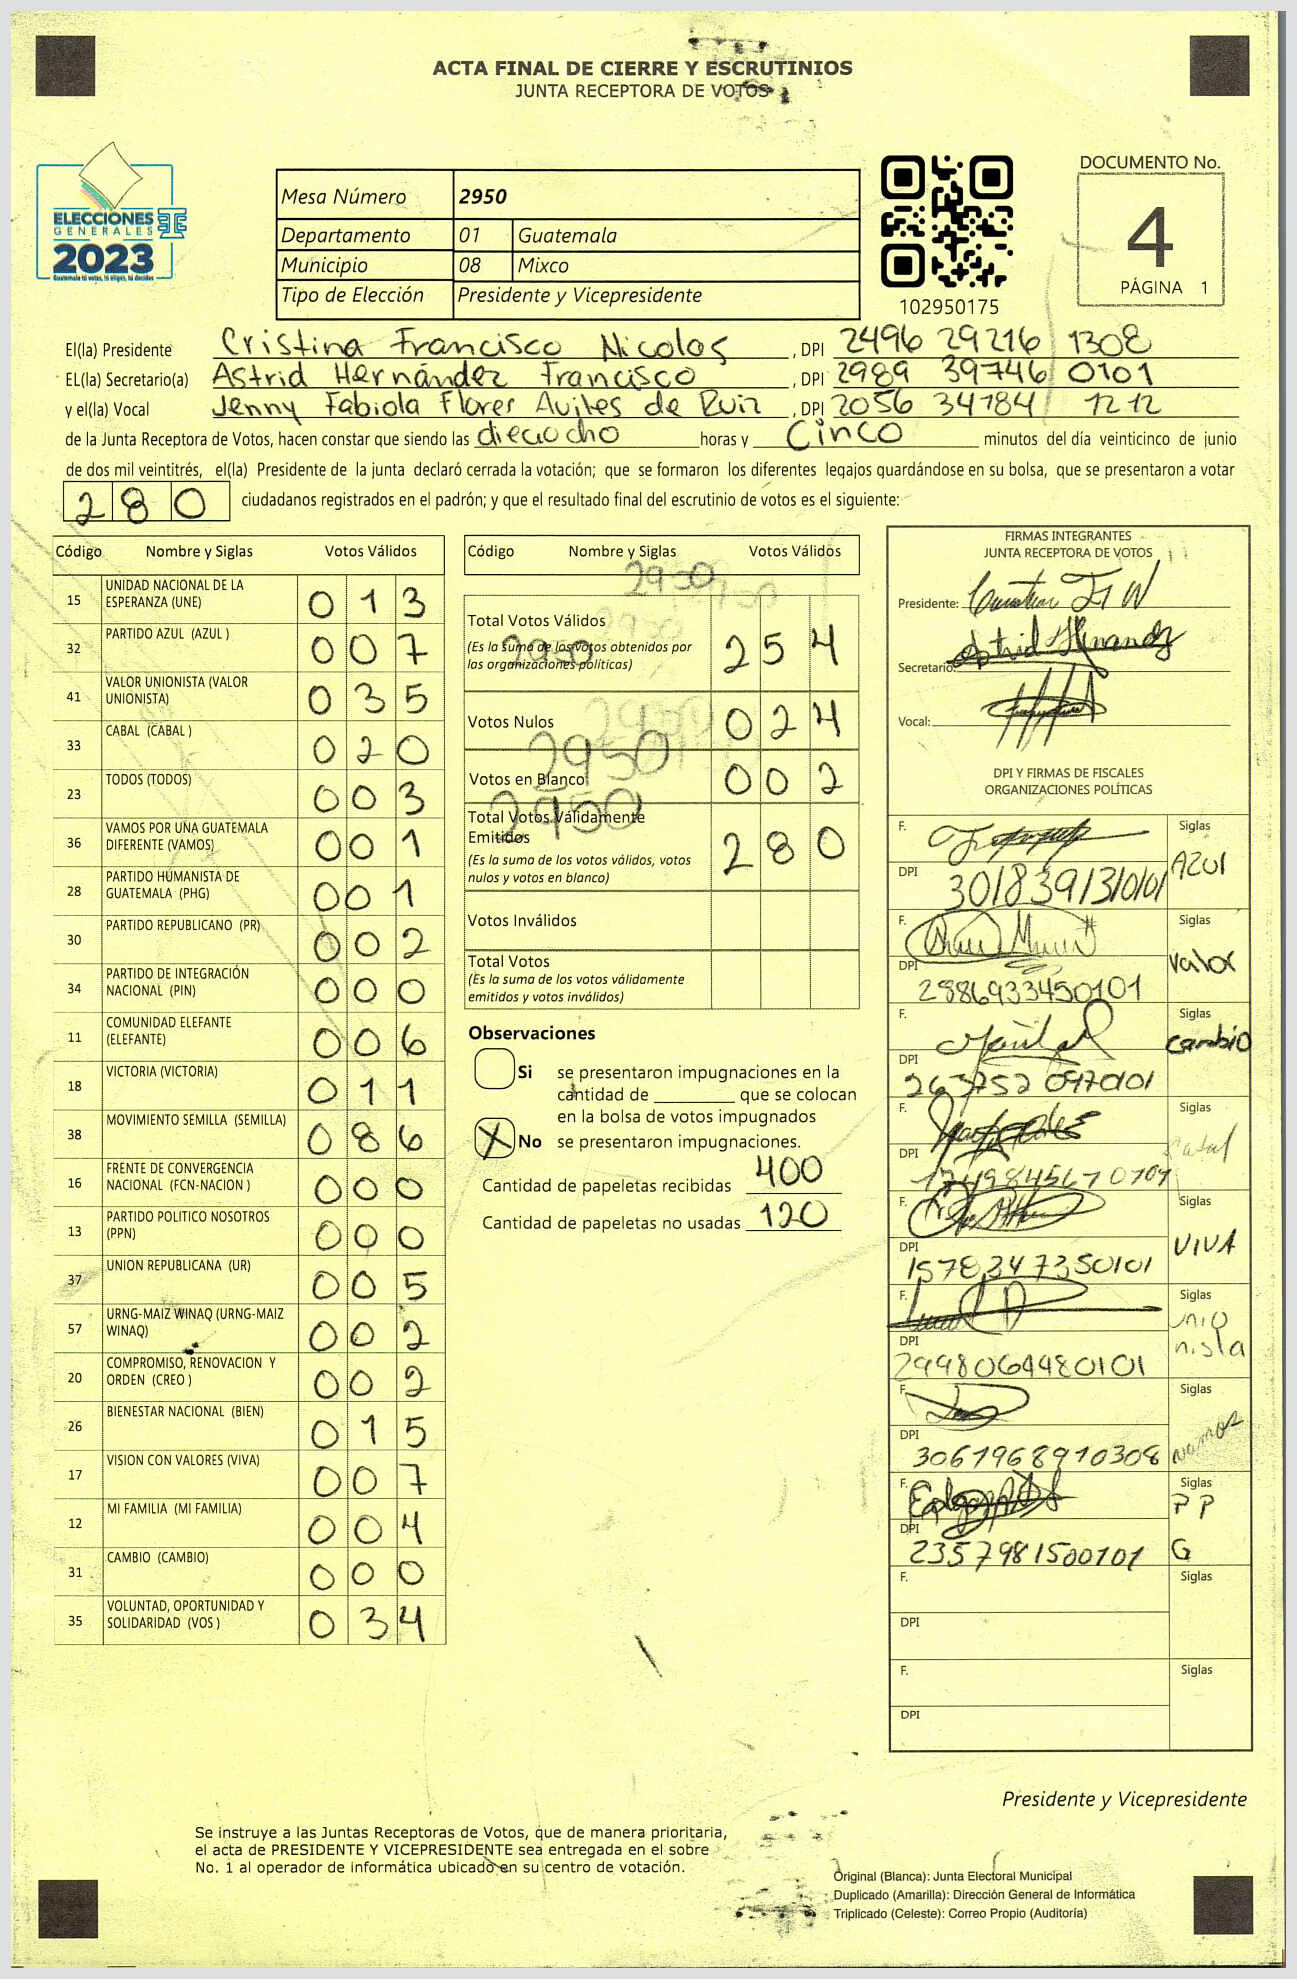 ACTA FINAL DE CIERRE Y ESCRUTINIOS
JUNTA RECEPTORA DE VOTOS
ELECCIONES
GENERALES
2023
Guatemala tú votas, tú eliges, tú decides
Mesa Número 2950
Departamento 01 Guatemala
Municipio 08 Mixco
Tipo de Elección Presidente y Vicepresidente
102950175
DOCUMENTO No.
4
PÁGINA 1
El(la) Presidente Cristina Francisco Nicolas, DPI 2496 29216 1308
EL(la) Secretario(a) Astrid Hernández Francisco, DPI 2989 39746 0101
y el(la) Vocal Jenny Fabiola Flores Aviles de Ruiz, DPI 2056 34784 1212
de la Junta Receptora de Votos, hacen constar que siendo las dieciocho horas y Cinco minutos del día veinticinco de junio
de dos mil veintitrés, el(la) Presidente de la junta declaró cerrada la votación; que se formaron los diferentes legajos guardándose en su bolsa, que se presentaron a votar
280 ciudadanos registrados en el padrón; y que el resultado final del escrutinio de votos es el siguiente:
Código Nombre y Siglas Votos Válidos
15 UNIDAD NACIONAL DE LA ESPERANZA (UNE) 013
32 PARTIDO AZUL (AZUL ) 007
41 VALOR UNIONISTA (VALOR UNIONISTA) 035
33 CABAL (CABAL ) 020
23 TODOS (TODOS) 003
36 VAMOS POR UNA GUATEMALA DIFERENTE (VAMOS) 001
28 PARTIDO HUMANISTA DE GUATEMALA (PHG) 001
30 PARTIDO REPUBLICANO (PR) 002
34 PARTIDO DE INTEGRACIÓN NACIONAL (PIN) 000
11 COMUNIDAD ELEFANTE (ELEFANTE) 006
18 VICTORIA (VICTORIA) 011
38 MOVIMIENTO SEMILLA (SEMILLA) 086
16 FRENTE DE CONVERGENCIA NACIONAL (FCN-NACION ) 000
13 PARTIDO POLITICO NOSOTROS (PPN) 000
37 UNION REPUBLICANA (UR) 005
57 URNG-MAIZ WINAQ (URNG-MAIZ WINAQ) 002
20 COMPROMISO, RENOVACION Y ORDEN (CREO ) 002
26 BIENESTAR NACIONAL (BIEN) 015
17 VISION CON VALORES (VIVA) 007
12 MI FAMILIA (MI FAMILIA) 004
31 CAMBIO (CAMBIO) 000
35 VOLUNTAD, OPORTUNIDAD Y SOLIDARIDAD (VOS ) 034
Código Nombre y Siglas Votos Válidos
2950
Total Votos Válidos 254
(Es la suma de los votos obtenidos por
las organizaciones políticas)
2950
Votos Nulos 024
2950
Votos en Blanco 002
2950
Total Votos Válidamente
Emitidos 280
(Es la suma de los votos válidos, votos
nulos y votos en blanco)
Votos Inválidos
Total Votos
(Es la suma de los votos válidamente
emitidos y votos inválidos)
Observaciones
Si se presentaron impugnaciones en la
cantidad de ________ que se colocan
en la bolsa de votos impugnados
X No se presentaron impugnaciones.
Cantidad de papeletas recibidas 400
Cantidad de papeletas no usadas 120
FIRMAS INTEGRANTES
JUNTA RECEPTORA DE VOTOS
Presidente:
Secretario: Astrid Hernandez
Vocal:
DPI Y FIRMAS DE FISCALES
ORGANIZACIONES POLÍTICAS
F. Siglas
DPI 3018391310101 AZUL
F. Siglas
DPI 2886933450101 valor
F. Siglas
DPI 263752 0970101 cambio
F. Siglas
DPI 1749845670709
F. Siglas
DPI 1578347350101 VIVA
F. Siglas
DPI 2998064480101 unionista
F. Siglas
DPI 3061968910308 vamos
F. Siglas
DPI 2357981500101 PPG
F. Siglas
DPI
F. Siglas
DPI
Presidente y Vicepresidente
Se instruye a las Juntas Receptoras de Votos, que de manera prioritaria,
el acta de PRESIDENTE Y VICEPRESIDENTE sea entregada en el sobre
No. 1 al operador de informática ubicado en su centro de votación.
Original (Blanca): Junta Electoral Municipal
Duplicado (Amarilla): Dirección General de Informática
Triplicado (Celeste): Correo Propio (Auditoría)